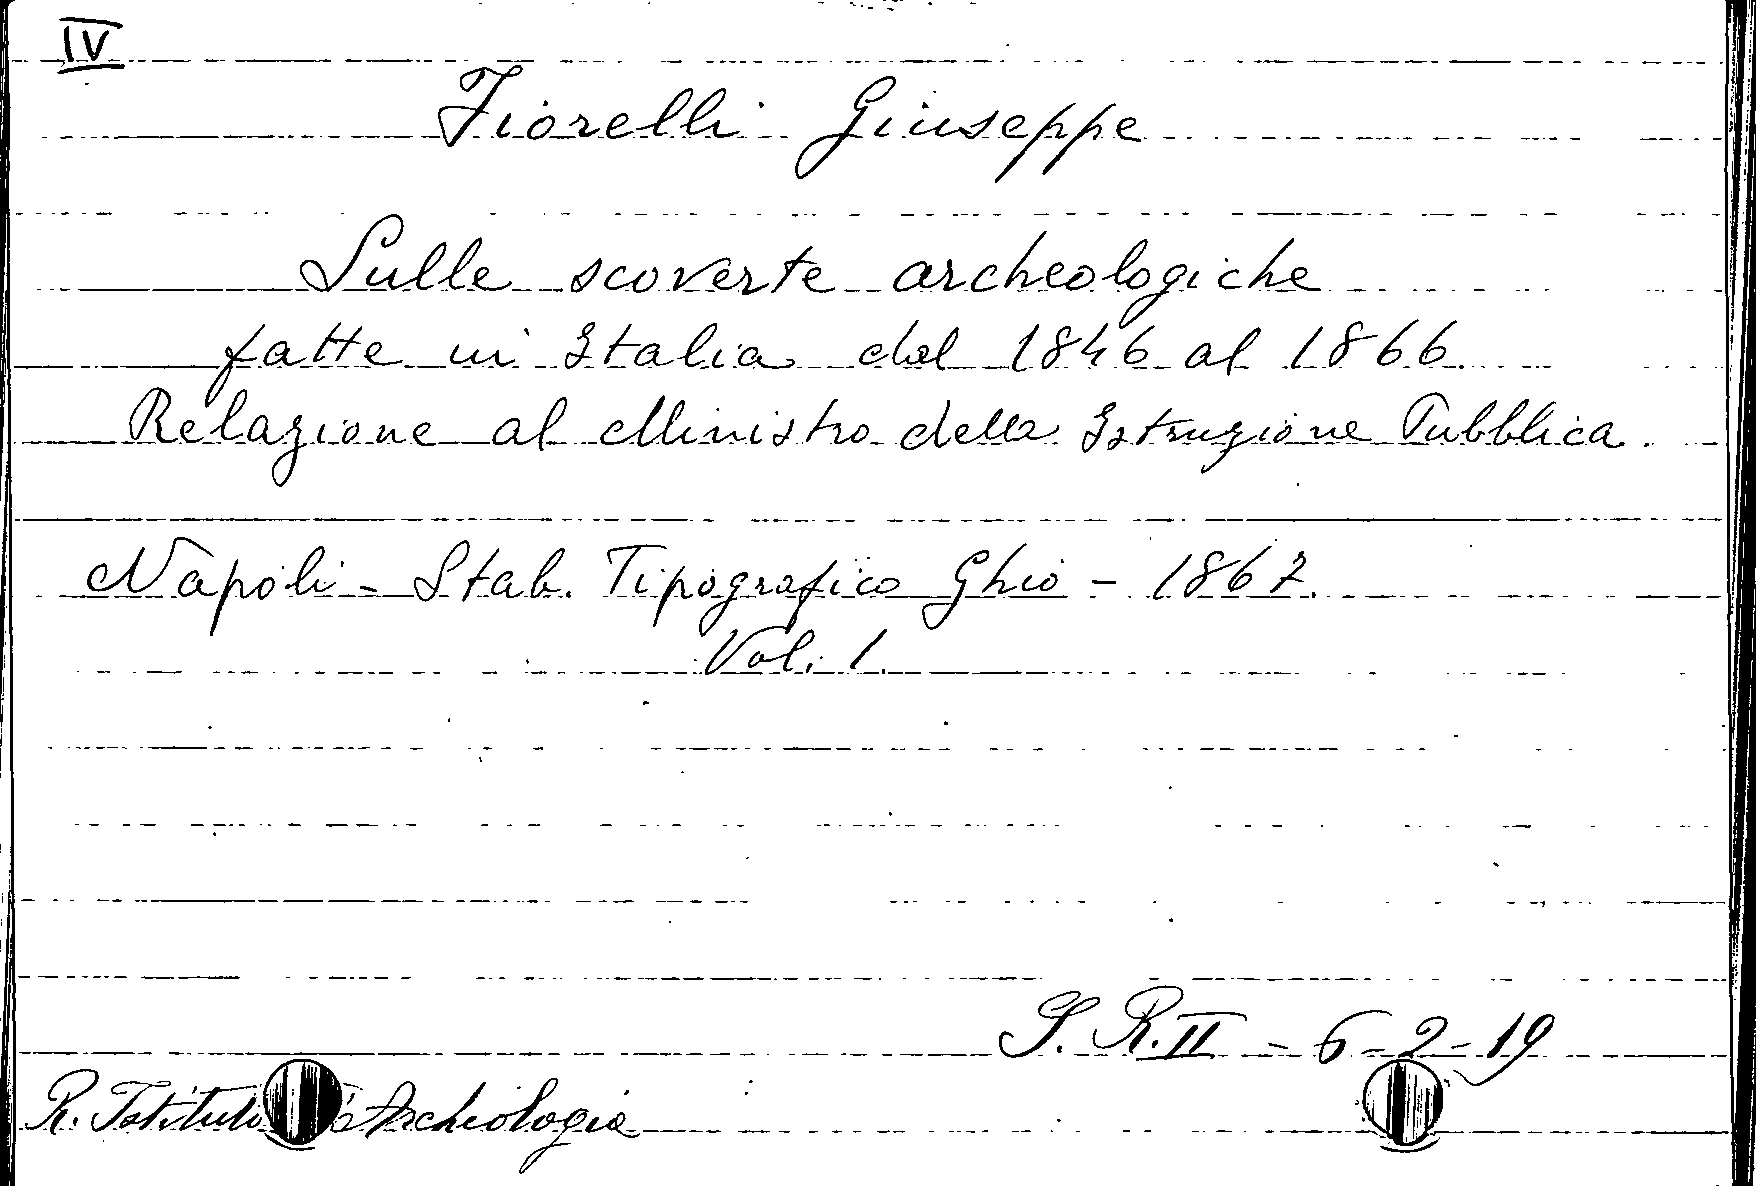 IV
Fiorelli Giuseppe
Sulle scoverte archeologiche
fatte in Italia dal 1846 al 1866.
Relazione al Ministro della Istruzione Pubblica.
Napoli - Stab. Tipografico Ghio - 1867.
Vol. 1.
S. R. II - 6-2-19
R. Istituto Archeologia